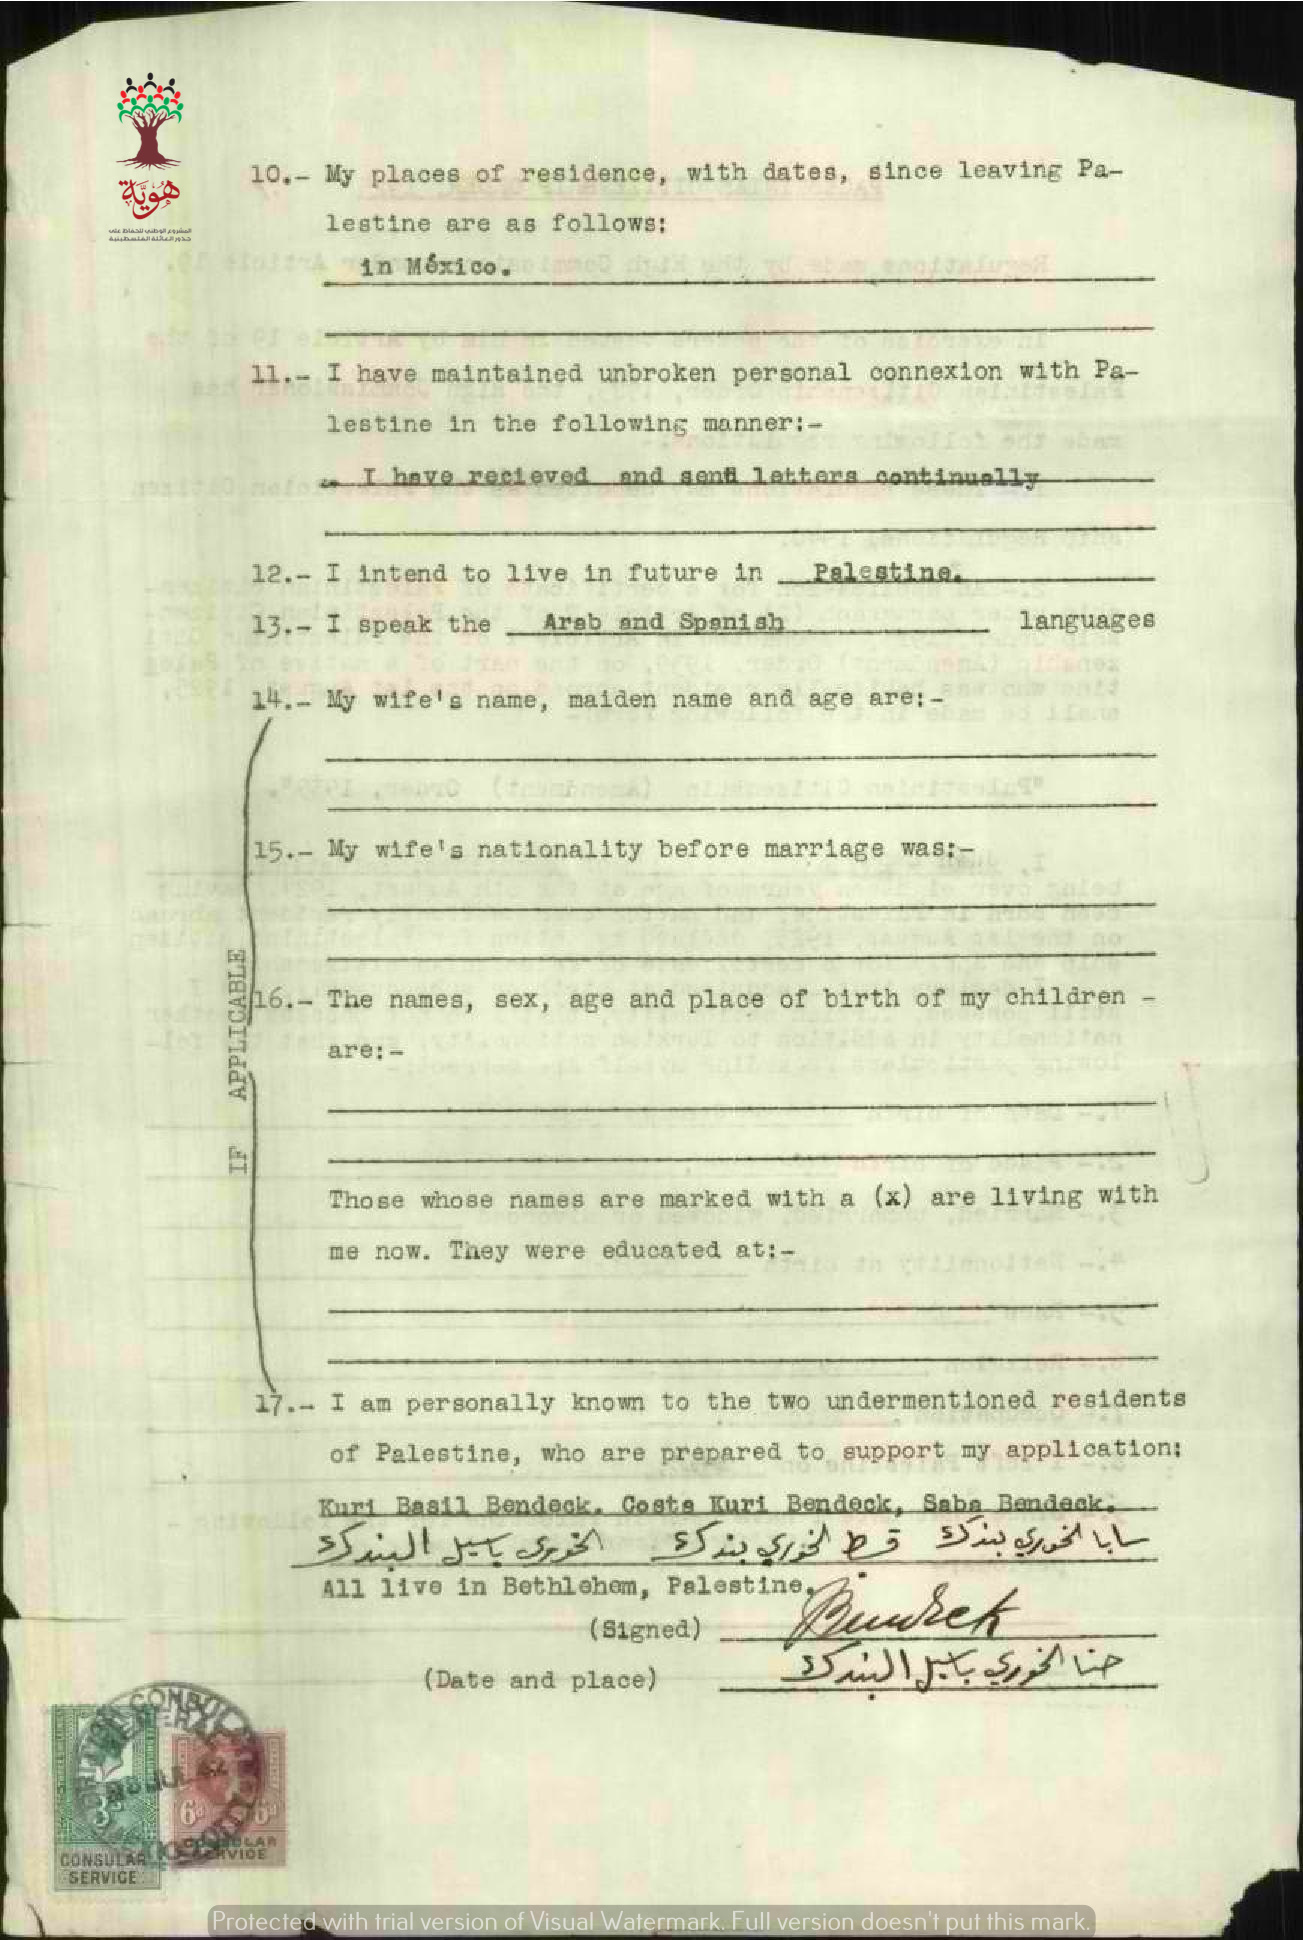 هوية
المشروع الوطني للحفاظ على
جذور العائلة الفلسطينية
10.- My places of residence, with dates, since leaving Pa-
lestine are as follows:
in México.
11.- I have maintained unbroken personal connexion with Pa-
lestine in the following manner:-
I have recieved and send letters continually
12.- I intend to live in future in Palestine.
13.- I speak the Arab and Spanish languages
14.- My wife's name, maiden name and age are:-
15.- My wife's nationality before marriage was:-
IF APPLICABLE
16.- The names, sex, age and place of birth of my children -
are:-
Those whose names are marked with a (x) are living with
me now. They were educated at:-
17.- I am personally known to the two undermentioned residents
of Palestine, who are prepared to support my application:
Kuri Basil Bendeck. Costa Kuri Bendeck, Saba Bendeck.
سابا الخوري بندك قسطا الخوري بندك الخوري باسيل البندك
All live in Bethlehem, Palestine.
(Signed) Bendeck
حنا الخوري باسيل البندك
(Date and place)
JUL 42
6d 6d
CONSULAR
SERVICE
CONSULAR
SERVICE
Protected with trial version of Visual Watermark. Full version doesn't put this mark.